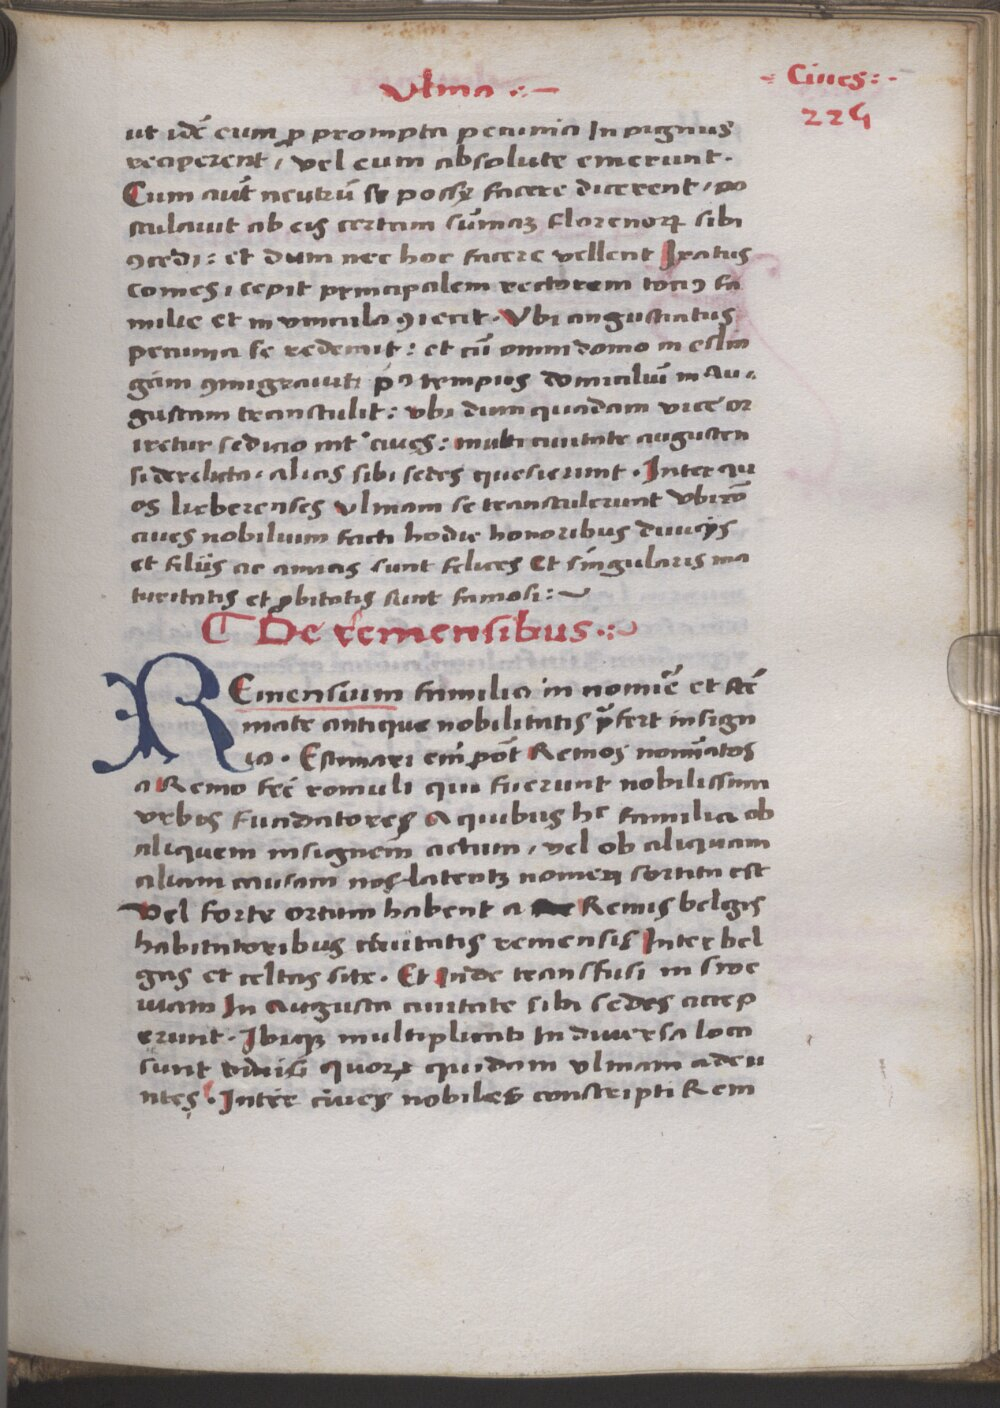 Vlma .:—
- Ciues: -
225
ut idē eum ꝓ prompta pecunia In pignus
reciperent / vel eum absolute emerunt.
Cum aut̄ neutrū se possꝫ facere dicerent / po
stulauit ab eis certam sūmaꝫ florenoꝝ sibi
ꝯcedi: et dum nec hoc facere vellent Iratus
comes, cepit principalem rectorem tociꝰ fa
milie et in vincula ꝯiecit. Vbi angustiatus
pecunia se redemit: et cū omni domo in eslin
gam ꝯmigrauit, pꝰ tempus domiciliū in Au-
gustam transtulit: vbi dum quadam vice or
iretur sedicio int̾ ciues: multi ciuitate augusten
si derelicta, alias sibi sedes quesierunt. Inter qu
os lieberenses vlmam se transtulerunt vbi rō
ciues nobilium facti hodie honoribus diuicijs
et filiis ac amicis sunt felices Et singularis ma
turitatis et ꝓbitatis sunt famosi: ~
De remensibus .:~
REmensium familia in nomīe et stē
mate antique nobilitatis p̄fert insign
ia. Estimari em̄ pōt Remos nomīatos
a Remo frē romuli qui fuerunt nobilissima
vrbis fundatores A quibus hͨ familia ob
aliquem insignem actum, vel ob aliquam
aliam causam nos latentꝫ nomen sortita est
Vel forte ortum habent a Remis belgis
habitatoribus ciuitatis remensis Inter bel
gas et celtas site. Et Inde transfusi in swe
uiam In Augusta ciuitate sibi sedes accep
erunt. Ibiqꝫ multiplicati In diuersa loca
sunt diuisi quoꝝ quidam vlmam adeu
ntes. Inter ciues nobiles conscripti Rem